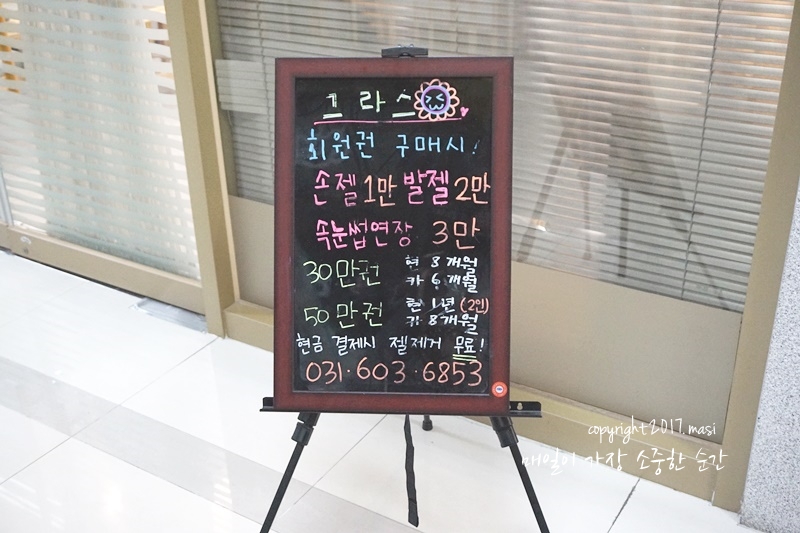 그라스
회원권 구매시!
손젤 1만 발젤 2만
속눈썹연장 3만
30만권 현 8개월
카 6개월
50만권 현 1년 (2인)
카 8개월
현금 결제시 젤제거 무료!
031·603·6853
copyright 2017. masi
매일이 가장 소중한 순간